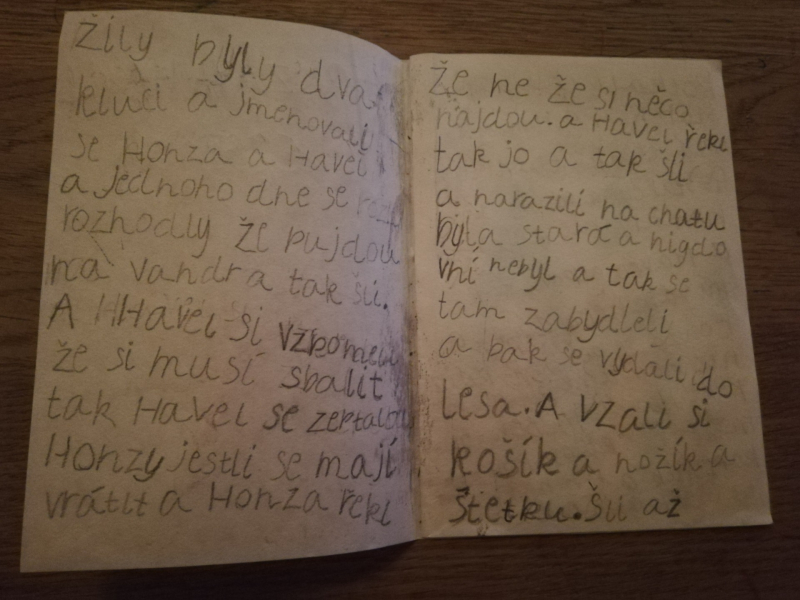 Žily byly dva
kluci a jmenovali
se Honza a Havel
a jednoho dne se
rozhodly že pujdou
na vandr a tak šli.
A Havel si vzpomel
že si musí sbalit
tak Havel se zeptal
Honzy jestli se mají
vrátit a Honza řekl
že ne že si něco
najdou. a Havel řekl
tak jo a tak šli
a narazili na chatu
byla stará a nigdo
vní nebyl a tak se
tam zabydleli
a pak se vydali do
lesa. A vzali si
košík a nožík a
štetku. šli až